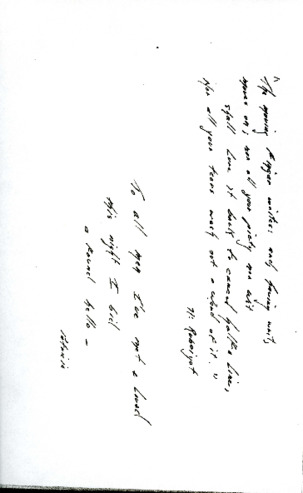 "The moving finger writes; and having writ,
moves on; nor all your piety nor wit
shall lure it back to cancel half a line,
Nor all your tears wash out a word of it."
To all men I've met & loved
this night I bid
a round hello –